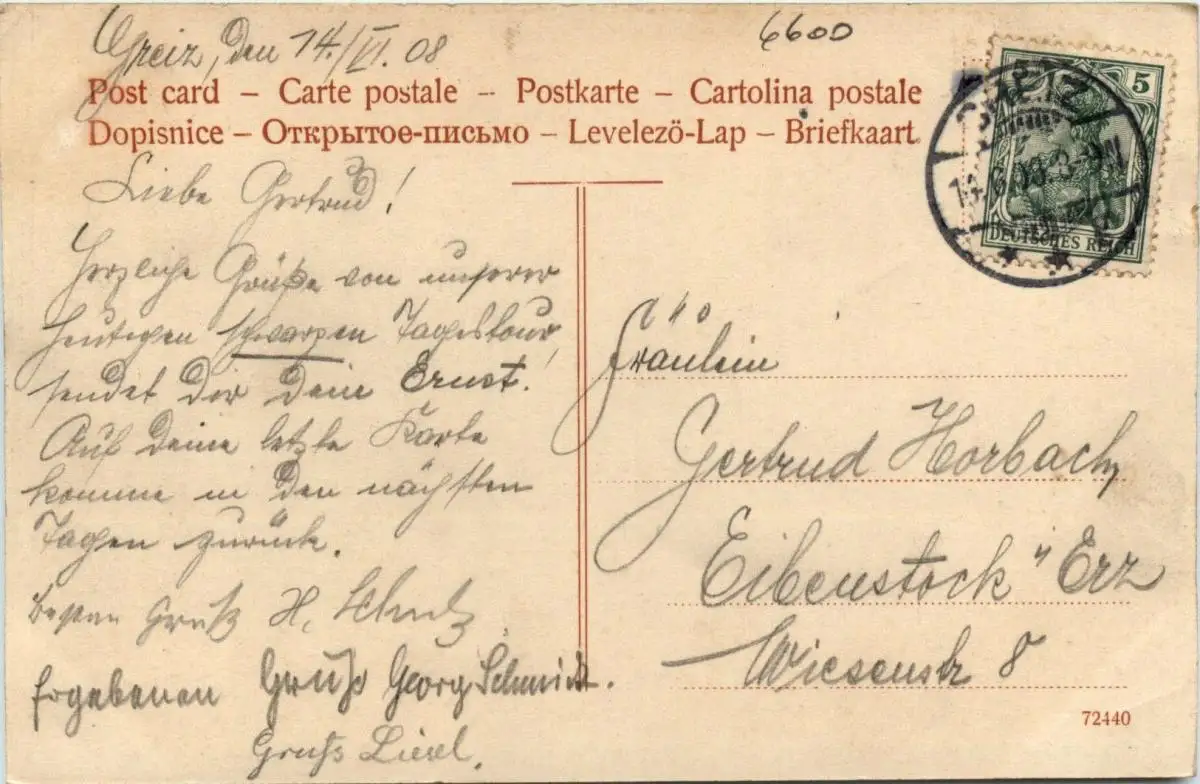 Greiz, den 14./VI. 08
6600
Post card – Carte postale – Postkarte – Cartolina postale
Dopisnice – Открытое-письмо – Levelező-Lap – Briefkaart
5
DEUTSCHES REICH
GREIZ
Liebe Gertrud!
Herzliche Grüße von unserer
heutigen schwarzen Tagestour
sendet dir dein Ernst!
Auf deine letzte Karte
komme in den nächsten
Tagen zurück.
Besten Gruß H.
Ergebenen Gruß Georg Schmidt.
Gruß
Fräulein
Gertrud Horbach
Eibenstock "Erz
Wiesenstr 8
72440